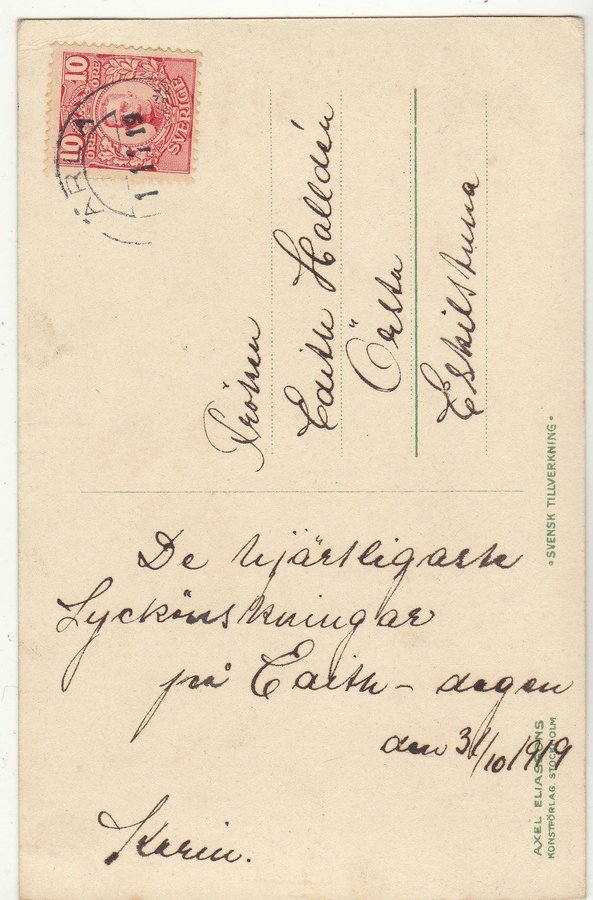 10 10
ÖRE ÖRE
SVERIGE
ÄRLA
1 11 19
Fröken
Edith Halldin
Örsta
Eskilstuna
De hjärtligaste
Lyckönskningar
på Edith-dagen
den 31/10 1919
Karin.
• SVENSK TILLVERKNING •
AXEL ELIASSONS
KONSTFÖRLAG. STOCKHOLM